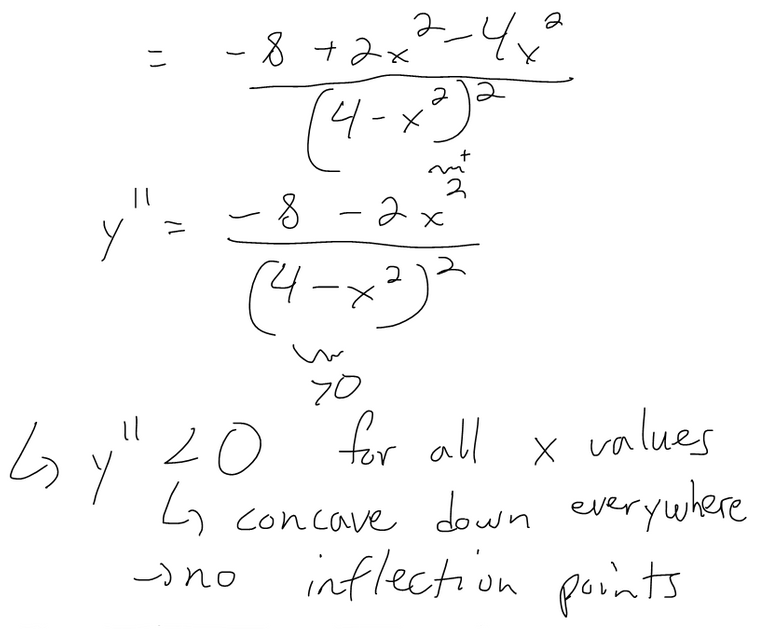 = (-8 + 2x² - 4x²) / (4 - x²)²
+
y'' = (-8 - 2x²) / (4 - x²)²
>0
↳ y'' < 0 for all x values
↳ concave down everywhere
→ no inflection points